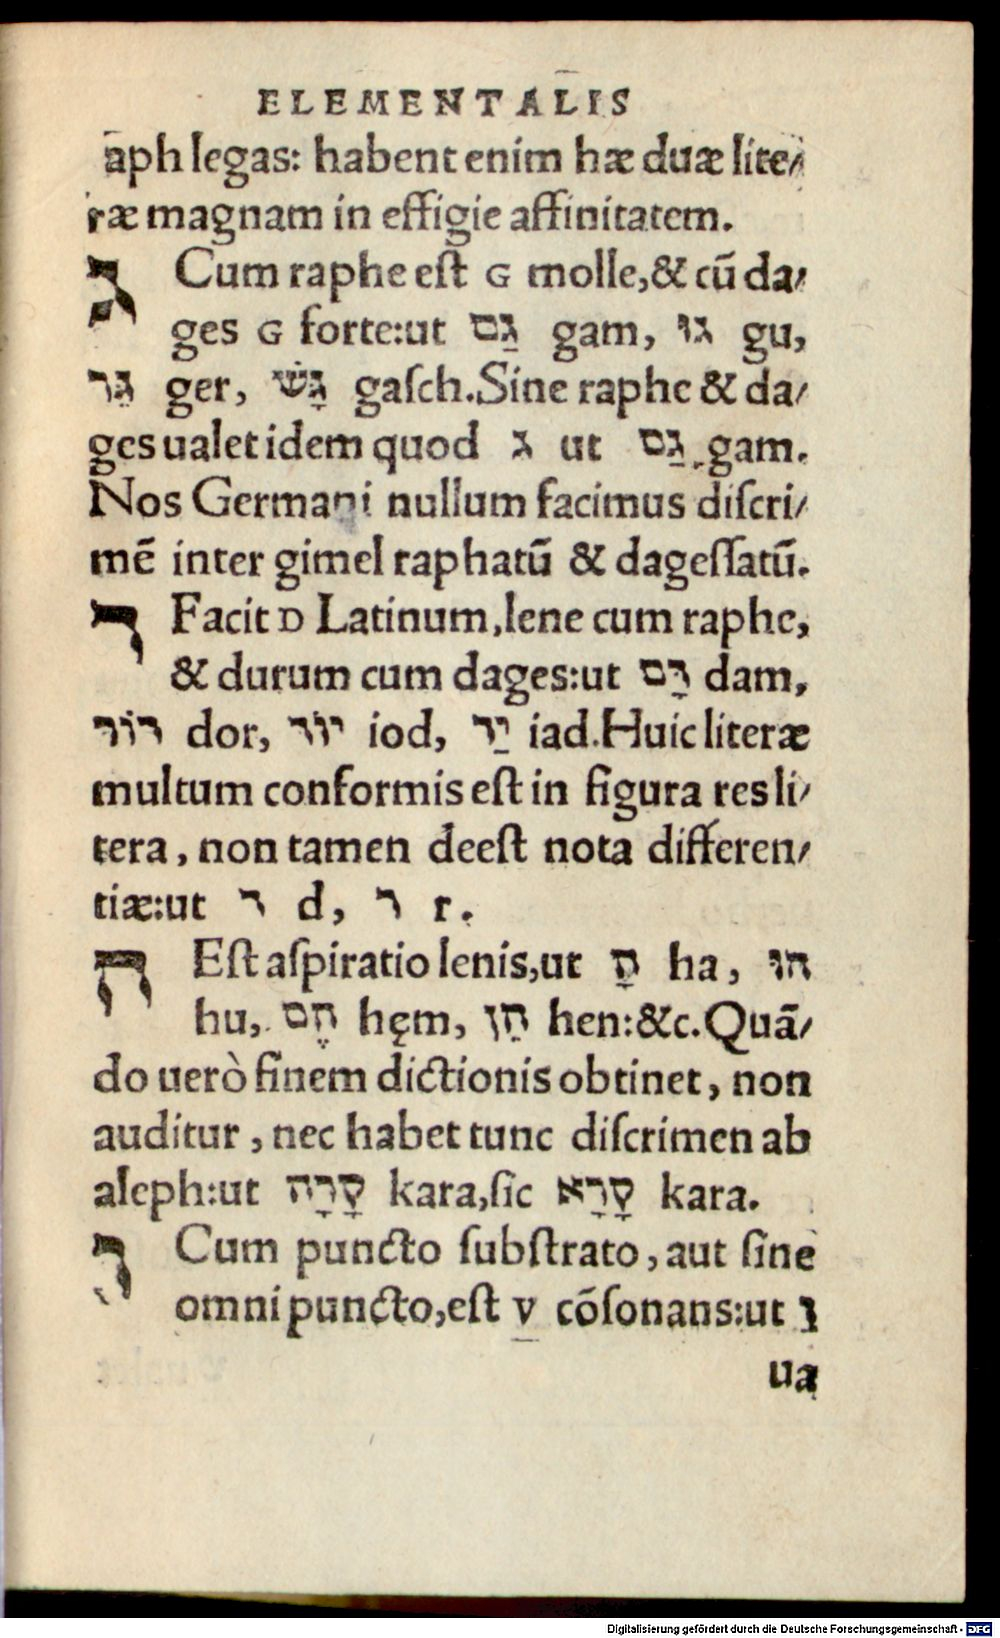 ELEMENTALIS
aph legas: habent enim hæ duæ lite/
ræ magnam in effigie affinitatem.
ג Cum raphe est G molle, & cū da/
ges G forte: ut גַּם gam, גּוּ gu,
גֵּר ger, גָּשׁ gaſch. Sine raphe & da/
ges ualet idem quod ג ut גַם gam.
Nos Germani nullum facimus diſcri/
mē inter gimel raphatū & dageſſatū.
ד Facit D Latinum, lene cum raphe,
& durum cum dages: ut דָּם dam,
דּוֹר dor, יוֹד iod, יַד iad. Huic literæ
multum conformis eſt in figura res li/
tera, non tamen deeſt nota differen/
tiæ: ut ד d, ר r.
ה Eſt aſpiratio lenis, ut הָ ha, הוּ
hu, הֶם hęm, הֵן hen: &c. Quā/
do uerò finem dictionis obtinet, non
auditur, nec habet tunc diſcrimen ab
aleph: ut קָרָה kara, ſic קָרָא kara.
ו Cum puncto ſubſtrato, aut ſine
omni puncto, eſt v cōſonans: ut וָ
ua
Digitalisierung gefördert durch die Deutsche Forschungsgemeinschaft - DFG